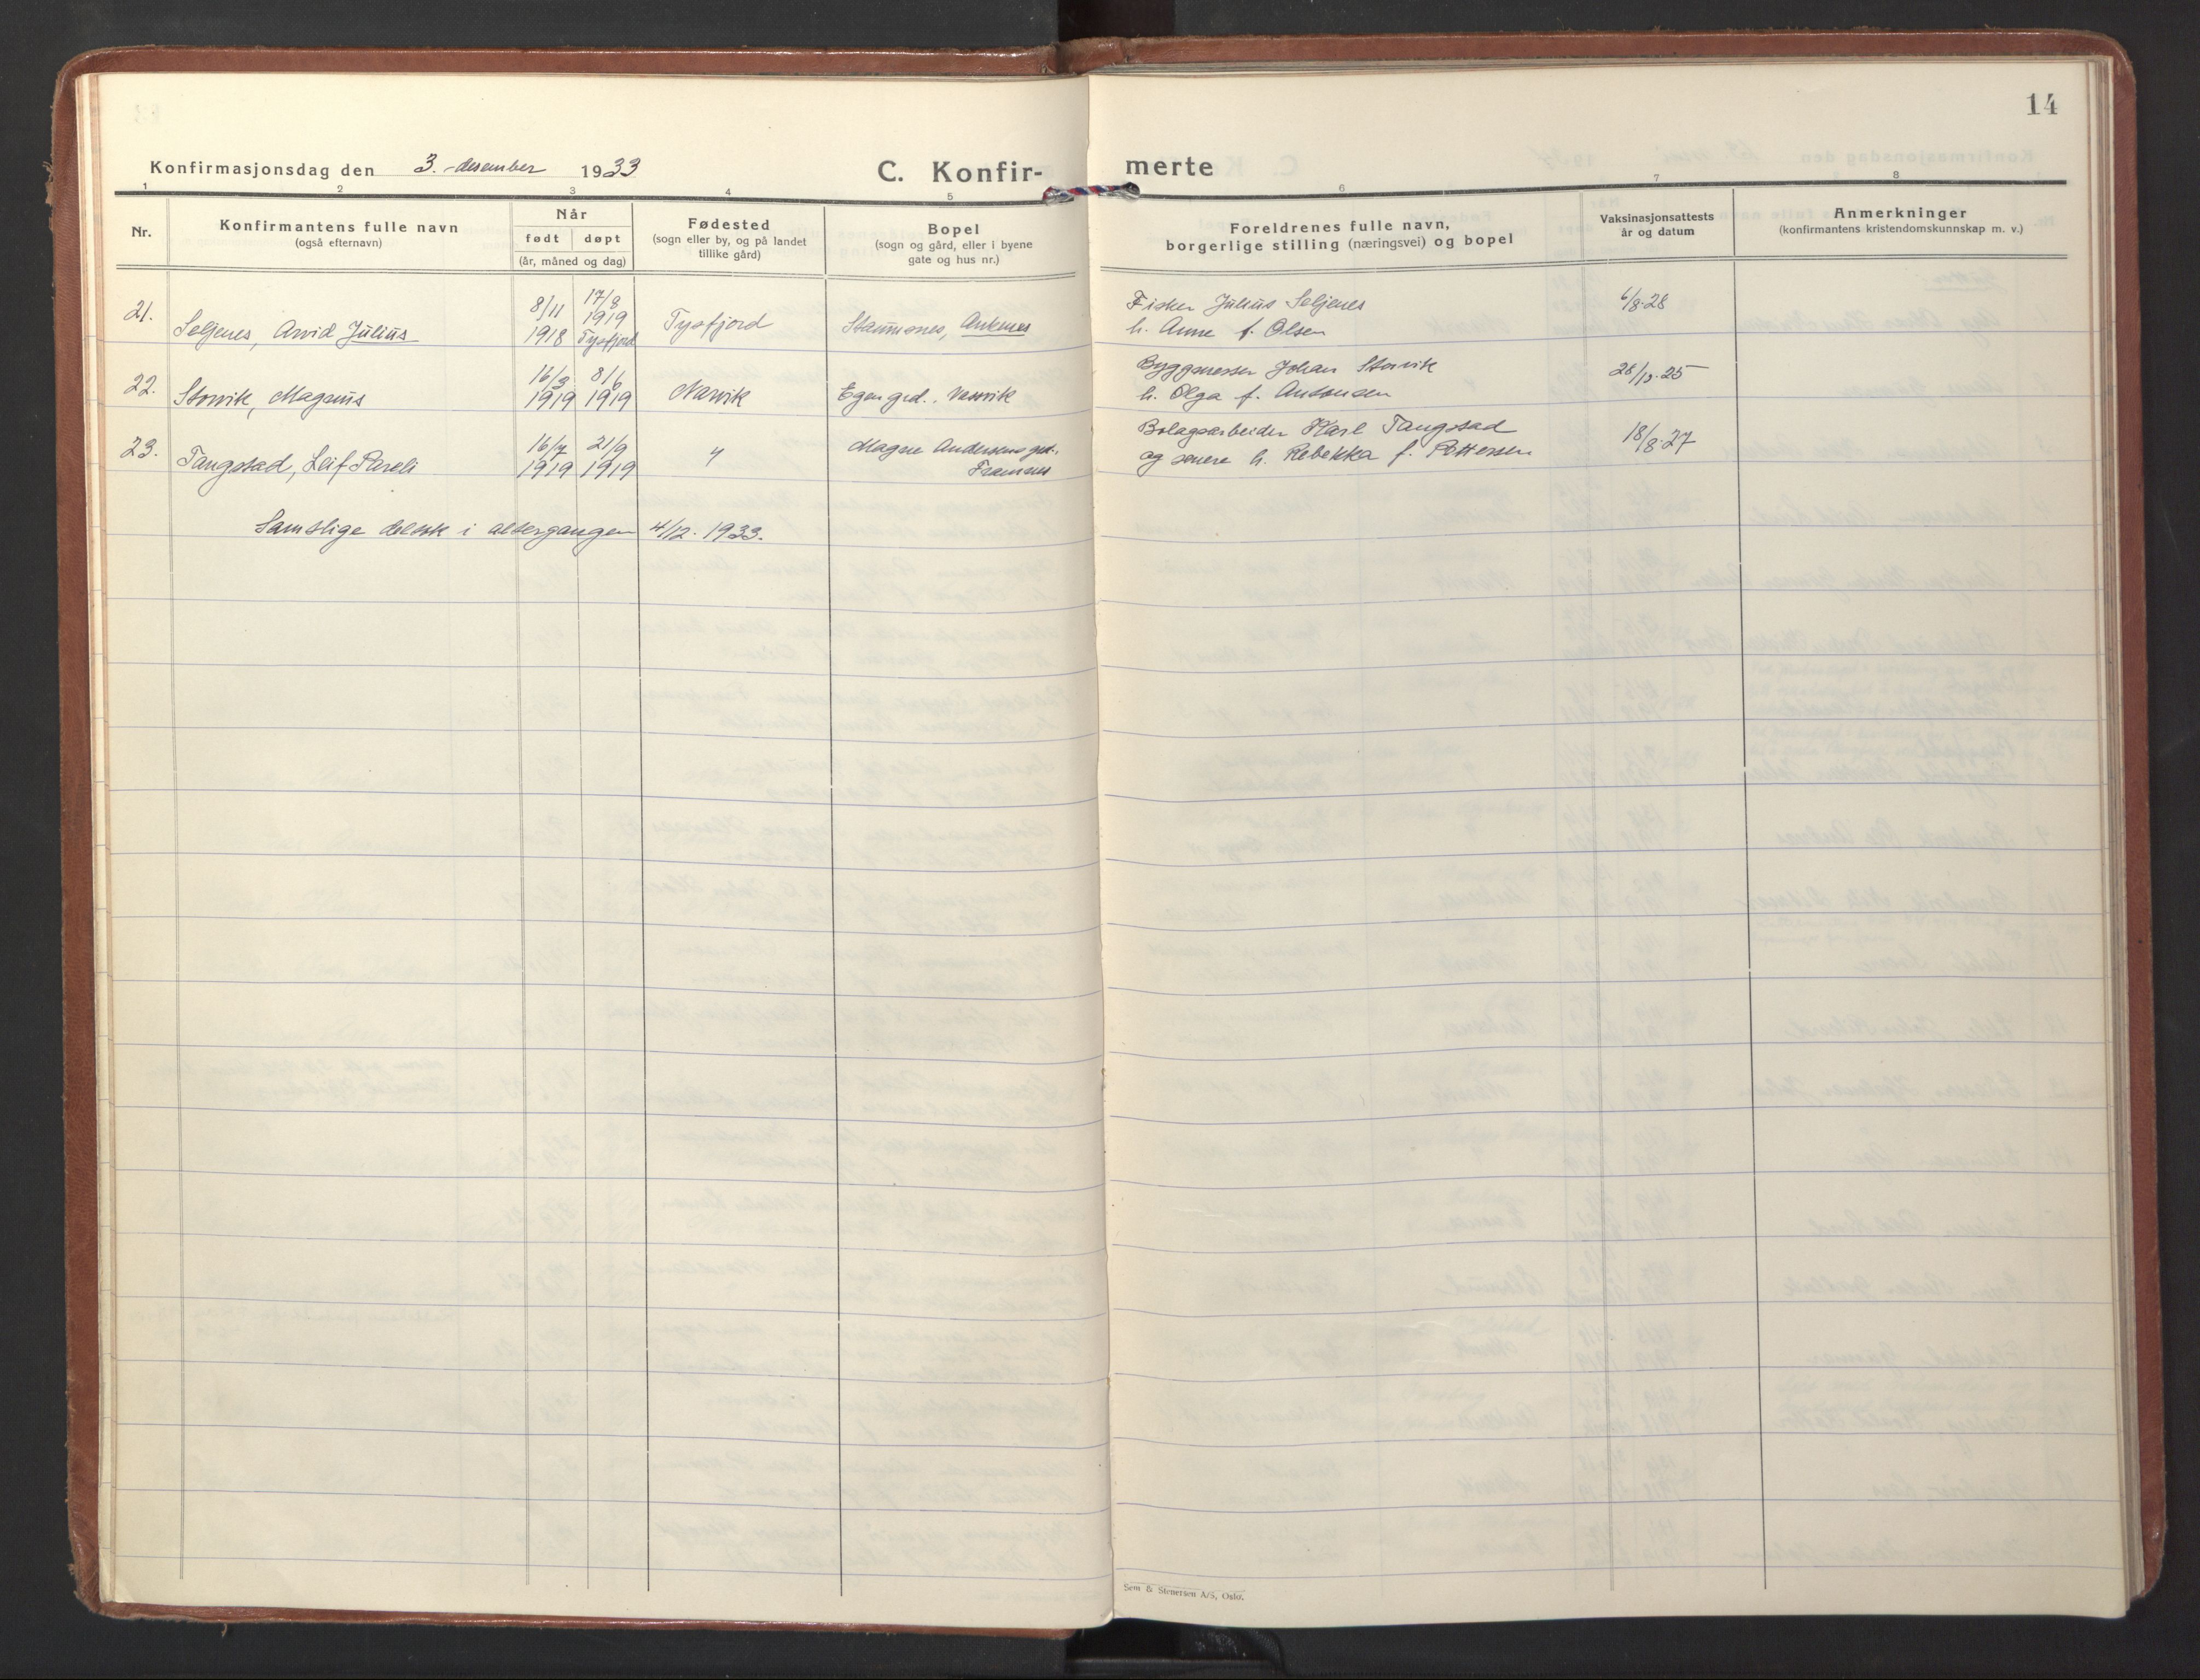 14
Konfirmasjonsdag den 3.-desember 1933
C. Konfirmerte
1 2 3 4 5 6 7 8
Nr.
Konfirmantens fulle navn
(også efternavn)
Når
født døpt
(år, måned og dag)
Fødested
(sogn eller by, og på landet
tillike gård)
Bopel
(sogn og gård, eller i byene
gate og hus nr.)
Foreldrenes fulle navn,
borgerlige stilling (næringsvei) og bopel
Vaksinasjonsattests
år og datum
Anmerkninger
(konfirmantens kristendomskunnskap m. v.)
21. Seljenes, Arvid Julius 8/11 1918 17/8 1919 Tysfjord Tysfjord Ankenes
Fisker Julius Seljenes
h. Anne f. Olsen
6/8.28
22. Storvik, Magnus 16/3 1919 8/6 1919 Narvik Egen grd.,
Byggmester Johan Storvik
h. Olga f. Antonsen
23. Tangstad, Leif Pareli 16/7 1919 21/9 1919 " Magne Andersens grd., Framnes
Bolagsarbeider Karl Tangstad
og senere h. Rebekka f. Pettersen
18/8.27
Samtlige deltok i altergangen 4/12. 1933.
Sem & Stenersen A/S, Oslo.